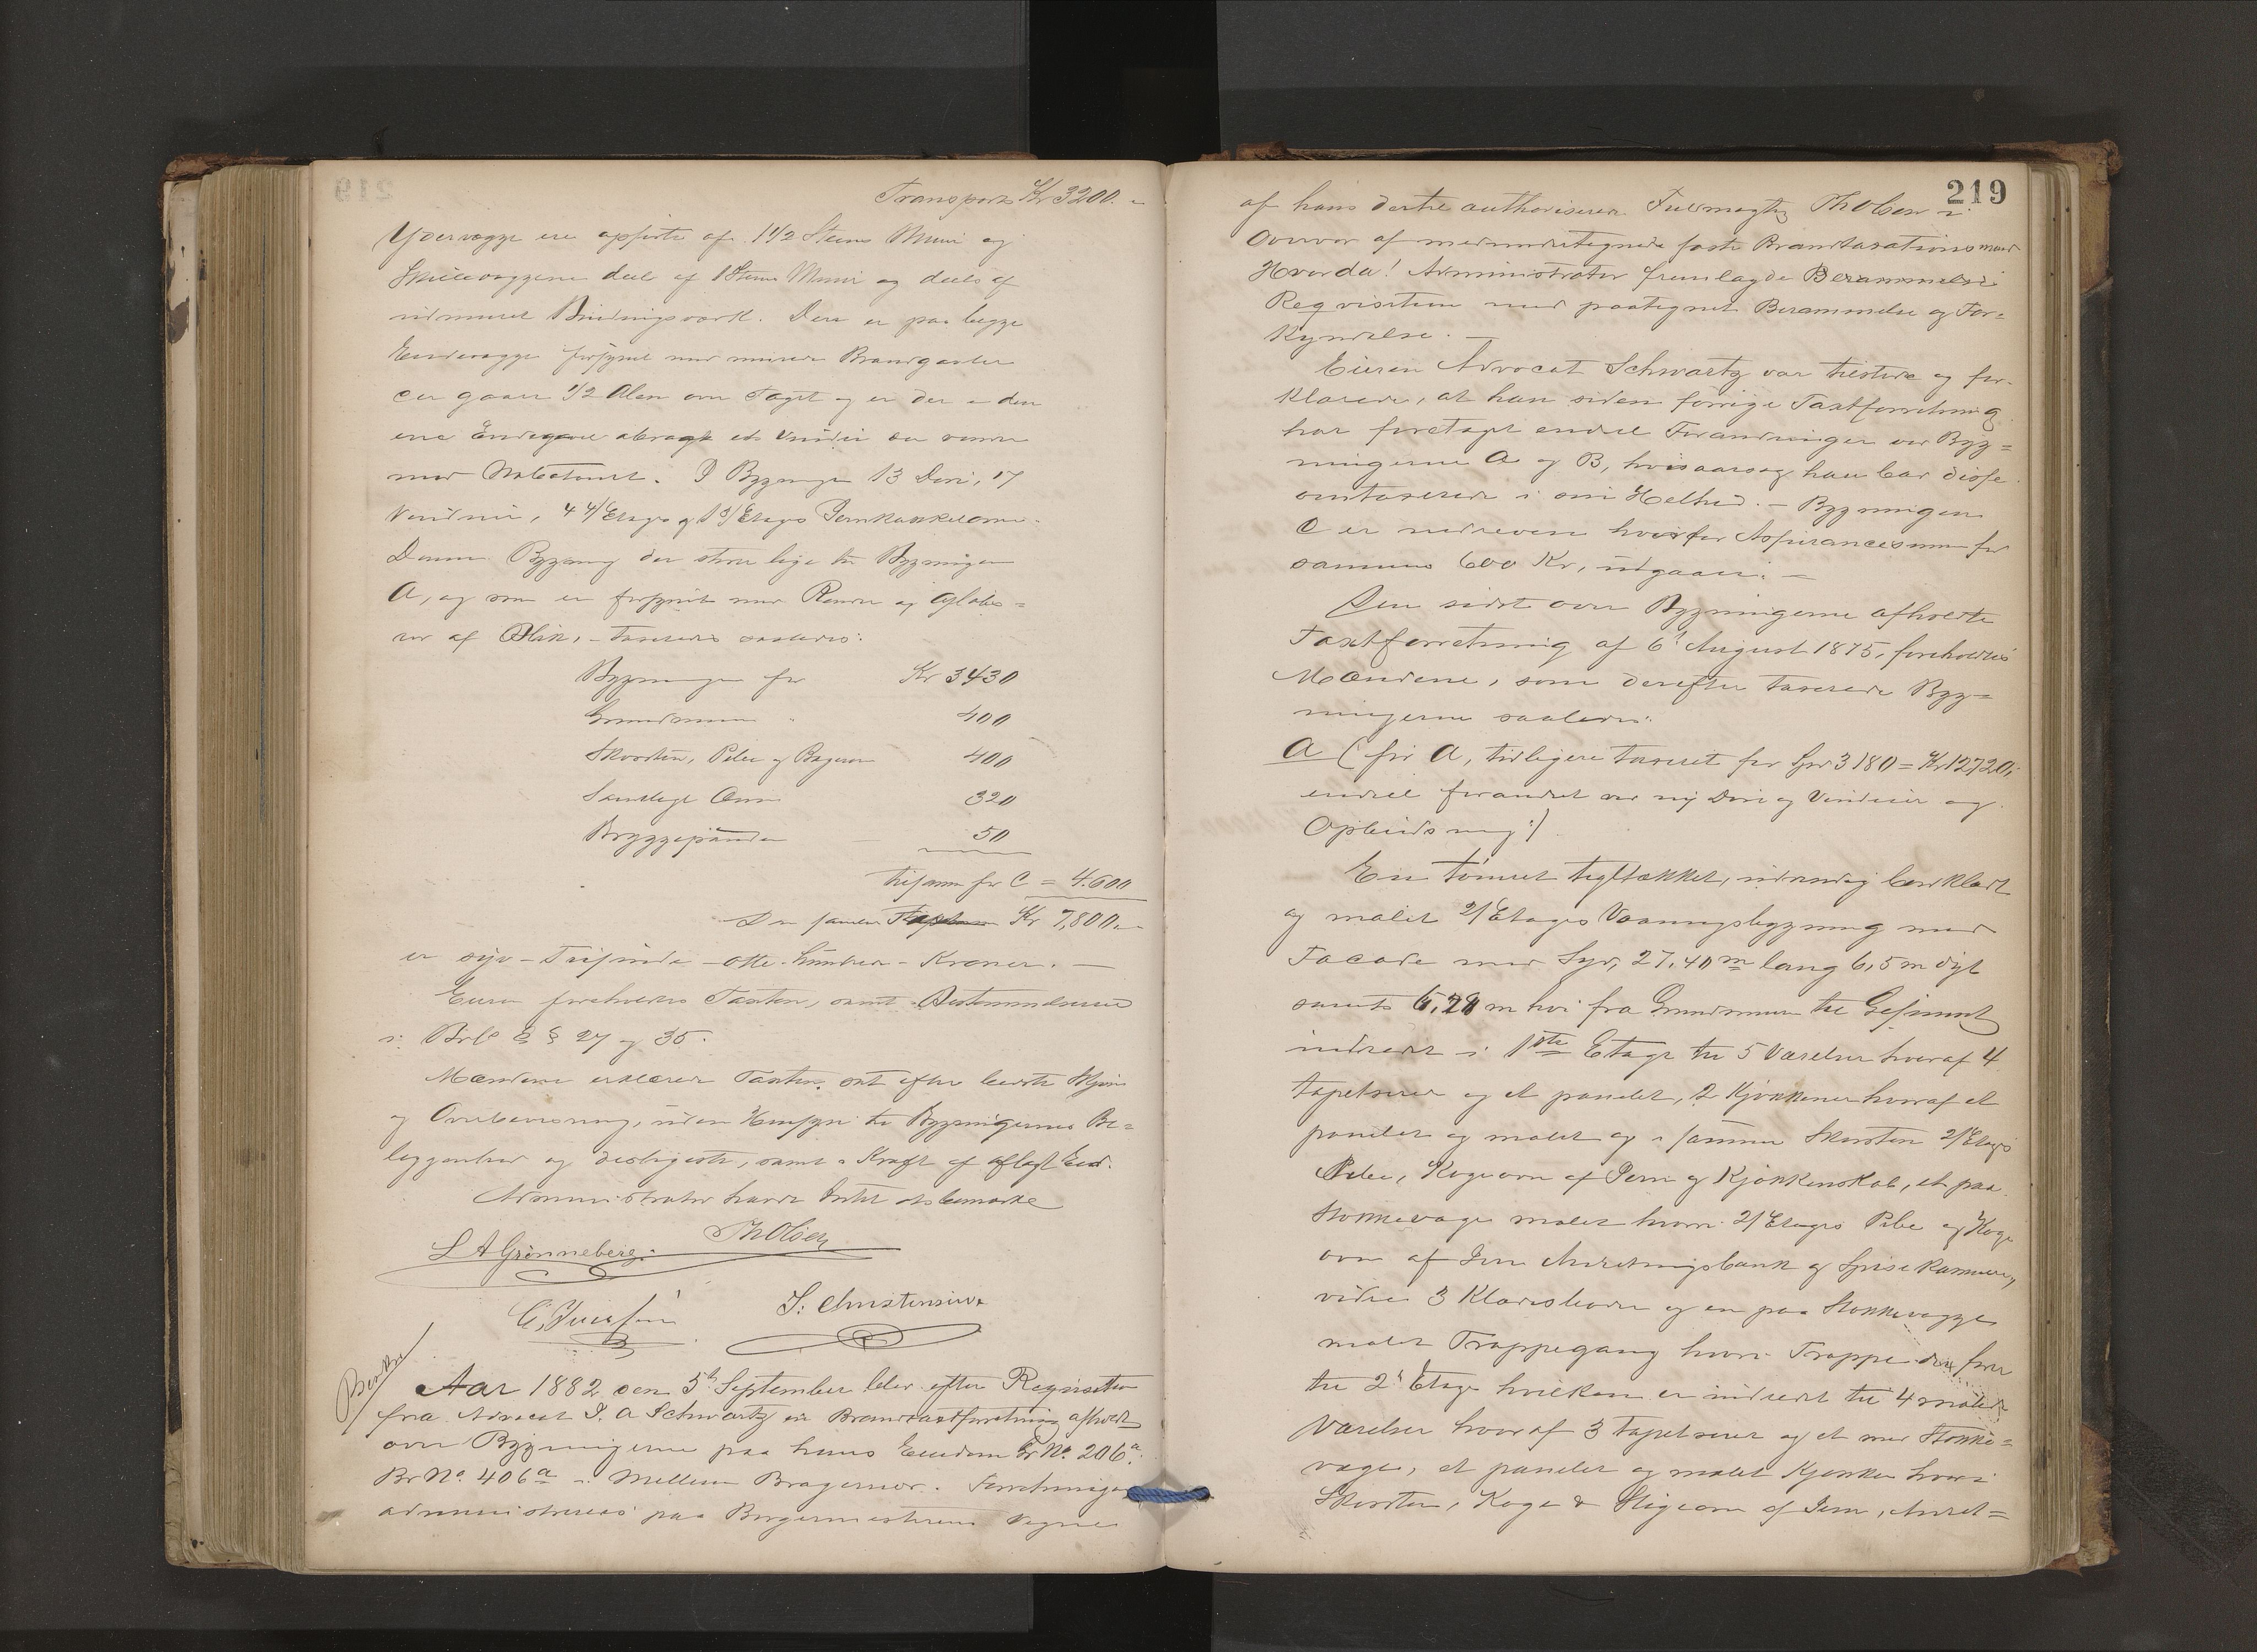 Transport Kr 3200. -
Ydervægge ere opførte af 1 1/2 Steens Muur og
Skillevæggene deels af 1 Steens Muur og deels af
udmuret Bindingsværk. Den er paa begge
Endevægge forsynet med murede Brandgavler
der gaar 1/2 Alen over Taget og er der i den
ene Endegavl et Vindu
mod Nabotomt. I Bygningen 13 Døre, 17
Vinduer, 4 4/Etages og 1 3/Etages Jernkakkelovne.
Denne Bygning der støder lige til Bygningen
A, og som er forsynet med Render og Afløbs=
rør af Blik, - taxeredes saaledes:
Bygningen for Kr 3430
Grundmuren " 400
Skorsten, Piber og Bagerovn 400
Samtlige Ovne 320
Bryggepande 50
tilsammen for C = 4.600
Den samlede Kr 7,800. -
er syv - Tusinde - otte - hundrede - Kroner. -
Eieren foreholdtes Taxten, samt Bestemmelserne
i Brl §§ 27 og 35.
Mændene erklærede Taxten sat efter bedste Skjøn
og Overbevisning, uden Hensyn til Bygningernes Be=
liggenhed og desligeste, samt i Kraft af aflagt Eed.
Administrator havde Intet at bemærke
Th Olsen
L A Grønneberg.
S. Christensen
Aar 1882 den 5t September blev efter Requisition
fra Advocat J. A Schwartz en Brandtaxtforretning afholdt
over Bygningerne paa hans Eiendom Gr No 206a.
Br No 406a i Mellem Bragernes. Forretningen
administreredes paa Borgermesterens Vegne
219
af hans dertil authoriserede Fuldmægtig Th Olsen i
Overvær af medundertegnede faste Brandtaxationsmænd
Hvorda! Administrator fremlagde
Requisition med paategnet Berammelse og For=
kyndelse. -
Eieren Advocat Schwartz var tilstede og for=
klarede, at han siden forrige Taxtforretning
har foretaget endeel Forandringer ved Byg=
ningerne A og B, hvisaarsag han bad disse
omtaxerede i sin Helhed. - Bygningen
C er nedreven hvorfor Assurancesum for
samme 600 Kr, udgaar. -
Den sidst over Bygningerne afholdte
Taxtforretning af 6t August 1875, foreholdtes
Mændene, som derefter taxerede Byg=
ningerne saaledes:
A (før A, tidligere taxeret for Spd 3180 = Kr 12720,
endeel forandret ved ny Døre og Vinduer og
Opbuds ning:)
En tømret teglstækket, udvendig bordklædt
og malet 2/Etages Vaaningsbygning med
Facade mod Syd, 27,40 m lang 6,5 m dyb
samt 6,28 m høi fra Grundmuren til Gesimset
indredet i 1ste Etage til 5 Værelser hvoraf 4
tapetserede og et panelet, 2 Kjøkkener hvoraf et
panelet og malet og i samme Skorsten 2/Etages
Pibe, Kogeovn af Jern og Kjøkkenskab, et paa
Stokkevæge malet hvori 2/Etages Pibe og Koge
ovn af Jern Anretningsbænk og Spisekammer,
videre 3 Klædesboder og en paa Stokkevægge
malet Trappegang hvori Trappe der fører
til 2d Etage hvilken er indredet til 4 malede
Værelser hvoraf 3 tapetserede og et med Stokke=
væge, et panelet og malet Kjøkken hvori
Skorsten, Koge & Stigeovn af Jern, Anret=